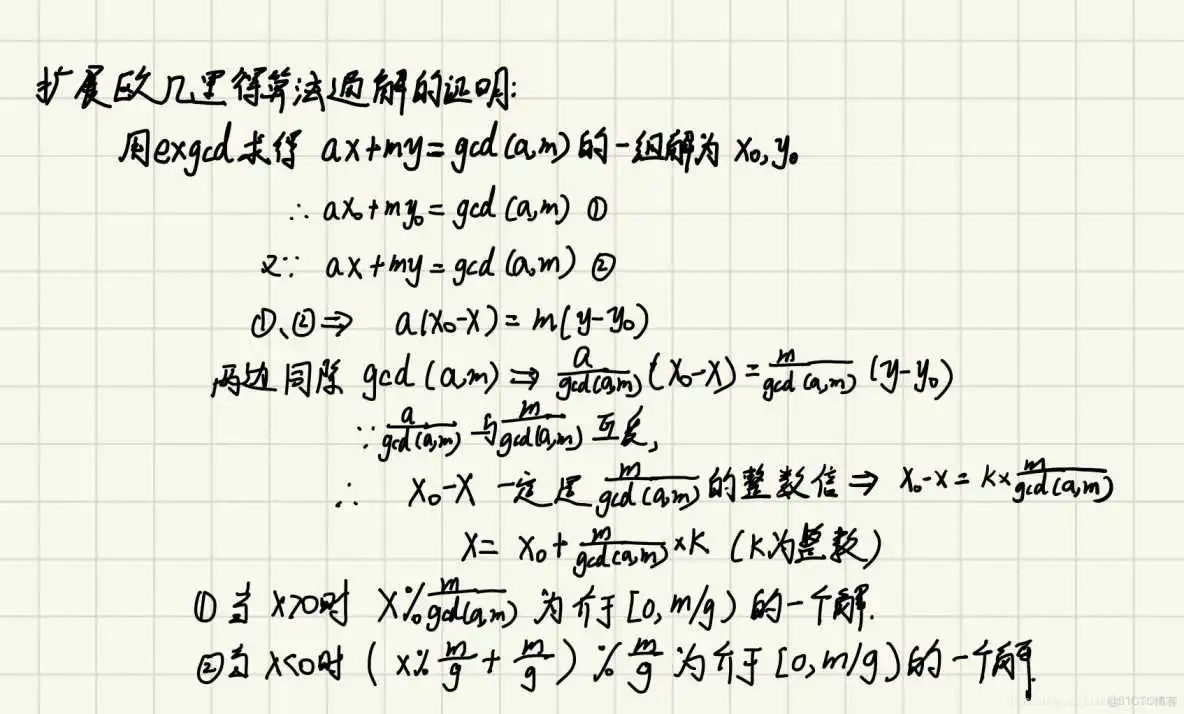 扩展欧几里得算法通解的证明:
用exgcd求得 ax+my=gcd(a,m)的一组解为 x₀,y₀
∴ ax₀+my₀=gcd(a,m) ①
又∵ ax+my=gcd(a,m) ②
①、②⇒ a(x₀-x)=m(y-y₀)
两边同除 gcd(a,m)⇒ a/gcd(a,m) (x₀-x)= m/gcd(a,m) (y-y₀)
∵ a/gcd(a,m) 与 m/gcd(a,m) 互质,
∴ x₀-x 一定是 m/gcd(a,m) 的整数倍⇒ x₀-x=k× m/gcd(a,m)
x= x₀+ m/gcd(a,m) ×k (k为整数)
①当 x>0时 x% m/gcd(a,m) 为介于[0,m/g)的一个解.
②当 x<0时 (x% m/g + m/g)% m/g 为介于[0,m/g)的一个解.
@51CTO博客